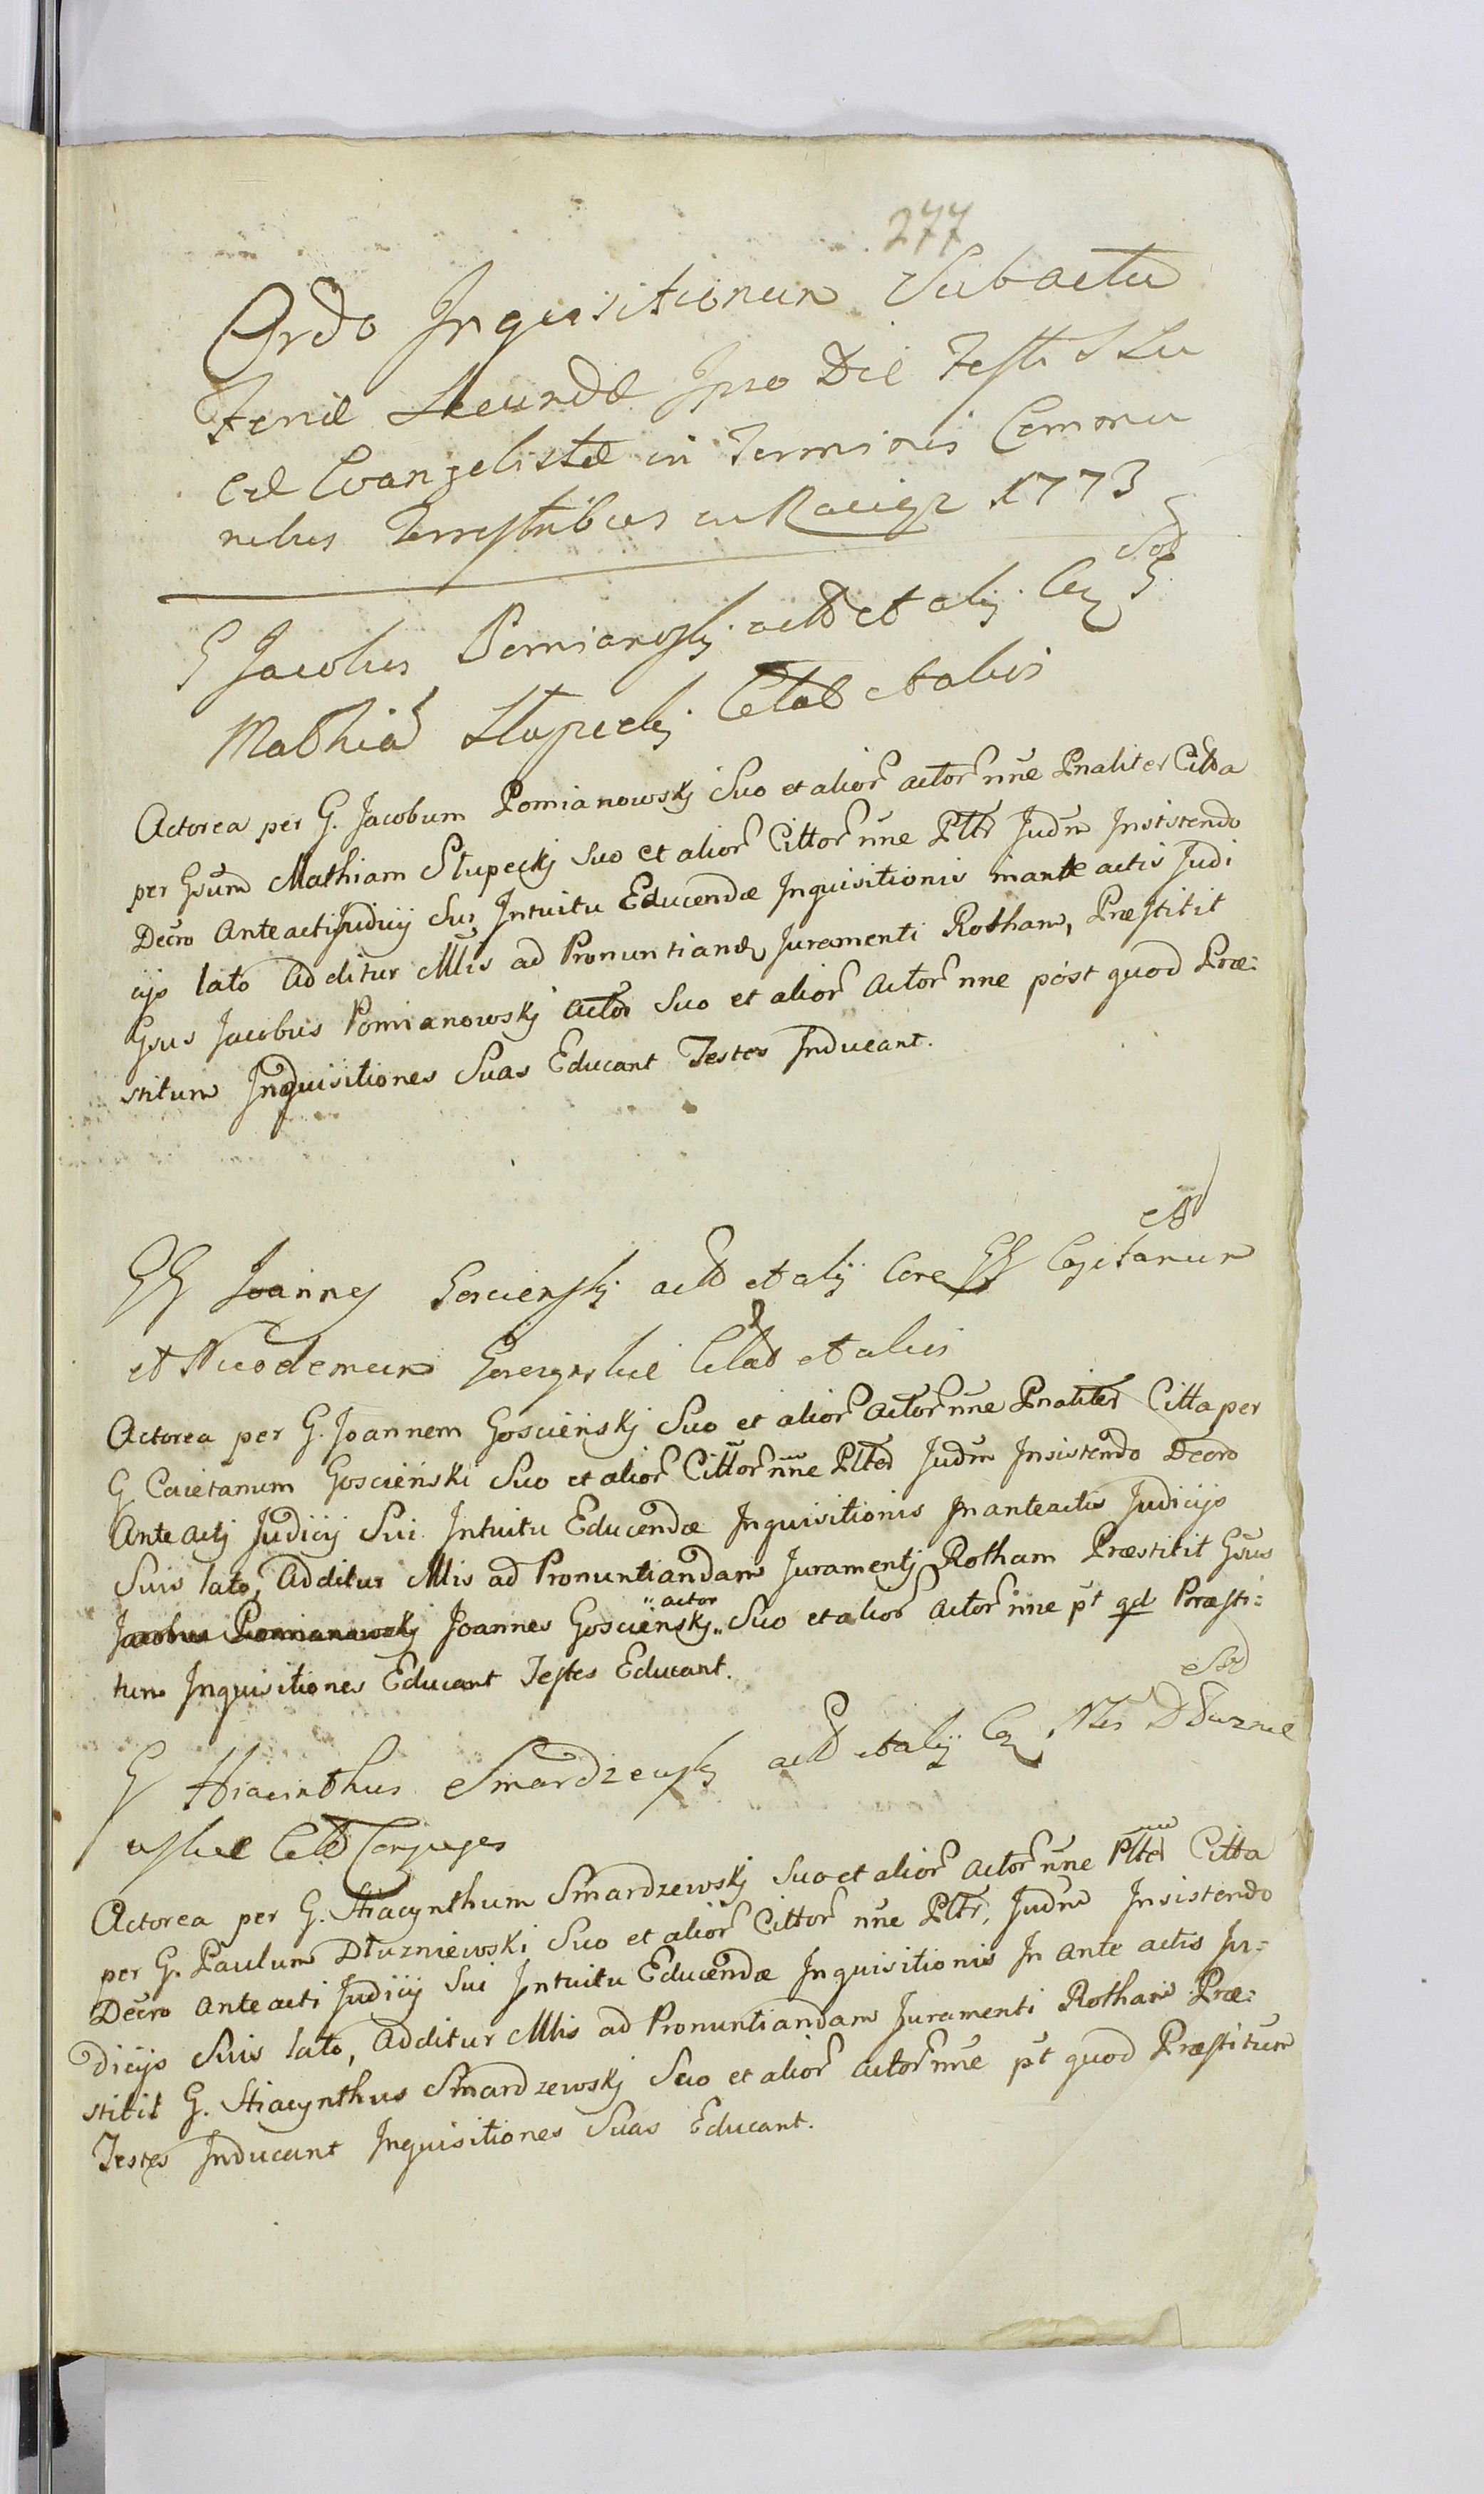 277
Ordo Inquisitionum Sub actu
Feriæ Secundæ Ipso Die Festi S Lu
cæ Evangelistæ in Terminis Commu
nibus Terrestribus in Raciąz 1773
G Jacobus Pomianowskj act et alij Cn G
Mathiā Słupeckj Citat et alios
Actorea per G. Jacobum Pomianowskj Suo et alior actor nne Pnaliter Citta
per Gsum Mathiam Słupeckj Suo et alior Cittor nne Pltr Judm Insistendo
Decro Ante acti Judicij Sui Intuitu Educendæ Inquisitionis in ante actis Judi
cijs lato Additur Mlis ad Pronuntiand Juramenti Rotham, Præstitit
Gsus Jacobus Pomianowskj Actor Suo et alior Actor nne post quod Præ:
stitum Inquisitiones Suas Educant Testes Inducant.
GG Joannes Goscienskj act et alij Cn GG Cajetanum
et Nicodemum Citat et alios
Actorea per G. Joannem Goscienskj Suo et alior Actor nne Pnaliter Citta per
G Caietanum Goscienski Suo et alior Cittor nne Plter Judm Insistendo Decro
Ante actj Judicij Sui Intuitu Educendæ Inquisitionis In anteactis Judicijs
Suis lato, Additur Mlis ad Pronuntiandam Juramentj Rotham Præstitit Gsus
actor
Jacobus Pomianowskj Joannes Goscienskj Suo et alior Actor nne pt qd Præsti:
tum Inquisitiones Educant Testes Educant.
G Hiacinthus Smardzewskj act et alij Cn Dłuznie
wskie Citt Conjuges
Actorea per G. Hiacynthum Smardzewskj Suo et alior Actor nne Plter Citta
per G. Paulum Dłuzniewski Suo et alior Cittor nne Pltr, Judm Insistendo
Decro Ante acti Judicij Sui Intuitu Educendæ Inquisitionis In ante actis Ju:
dicijs Suis lato, Additur Mlis ad Pronuntiandam Juramenti Rotham Præ:
stitit G. Hiacynthus Smardzewskj Suo et alior actor nne pt quod Præstitum
Testes Inducant Inquisitiones Suas Educant.